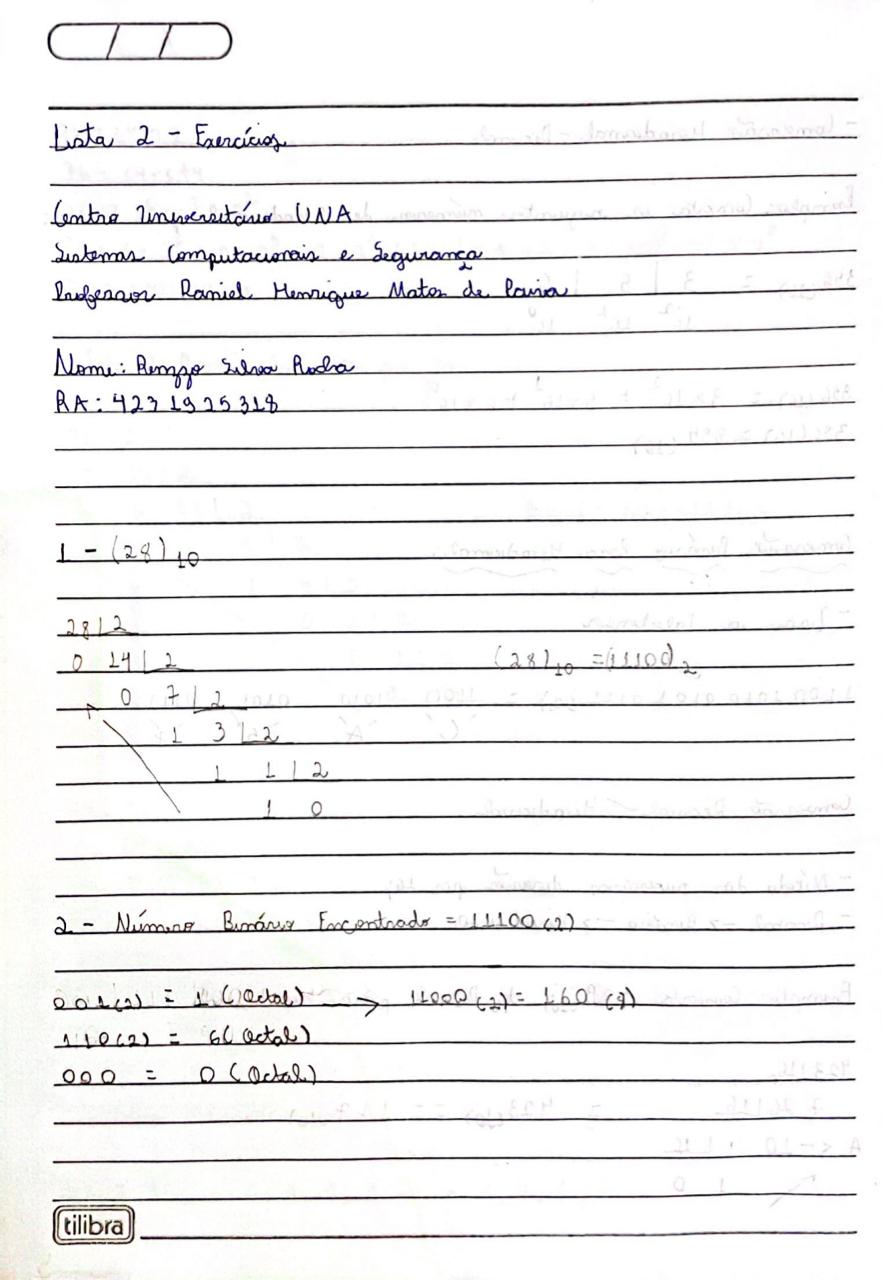 Lista 2 - Exercícios
Centro Universitário UNA
Sistemas Computacionais e Segurança
Professor Daniel Henrique Matos de Paiva
Nome: Renzzo Silva Rocha
RA: 4231925318
1 - (28)10
28 | 2
0 14 | 2 (28)10 = (11100)2
0 7 | 2
1 3 | 2
1 1 | 2
1 0
2 - Número Binário Encontrado = 11100 (2)
001(2) = 1 (Octal) → 11000 (2) = 160 (8)
110(2) = 6 (Octal)
000 = 0 (Octal)
tilibra